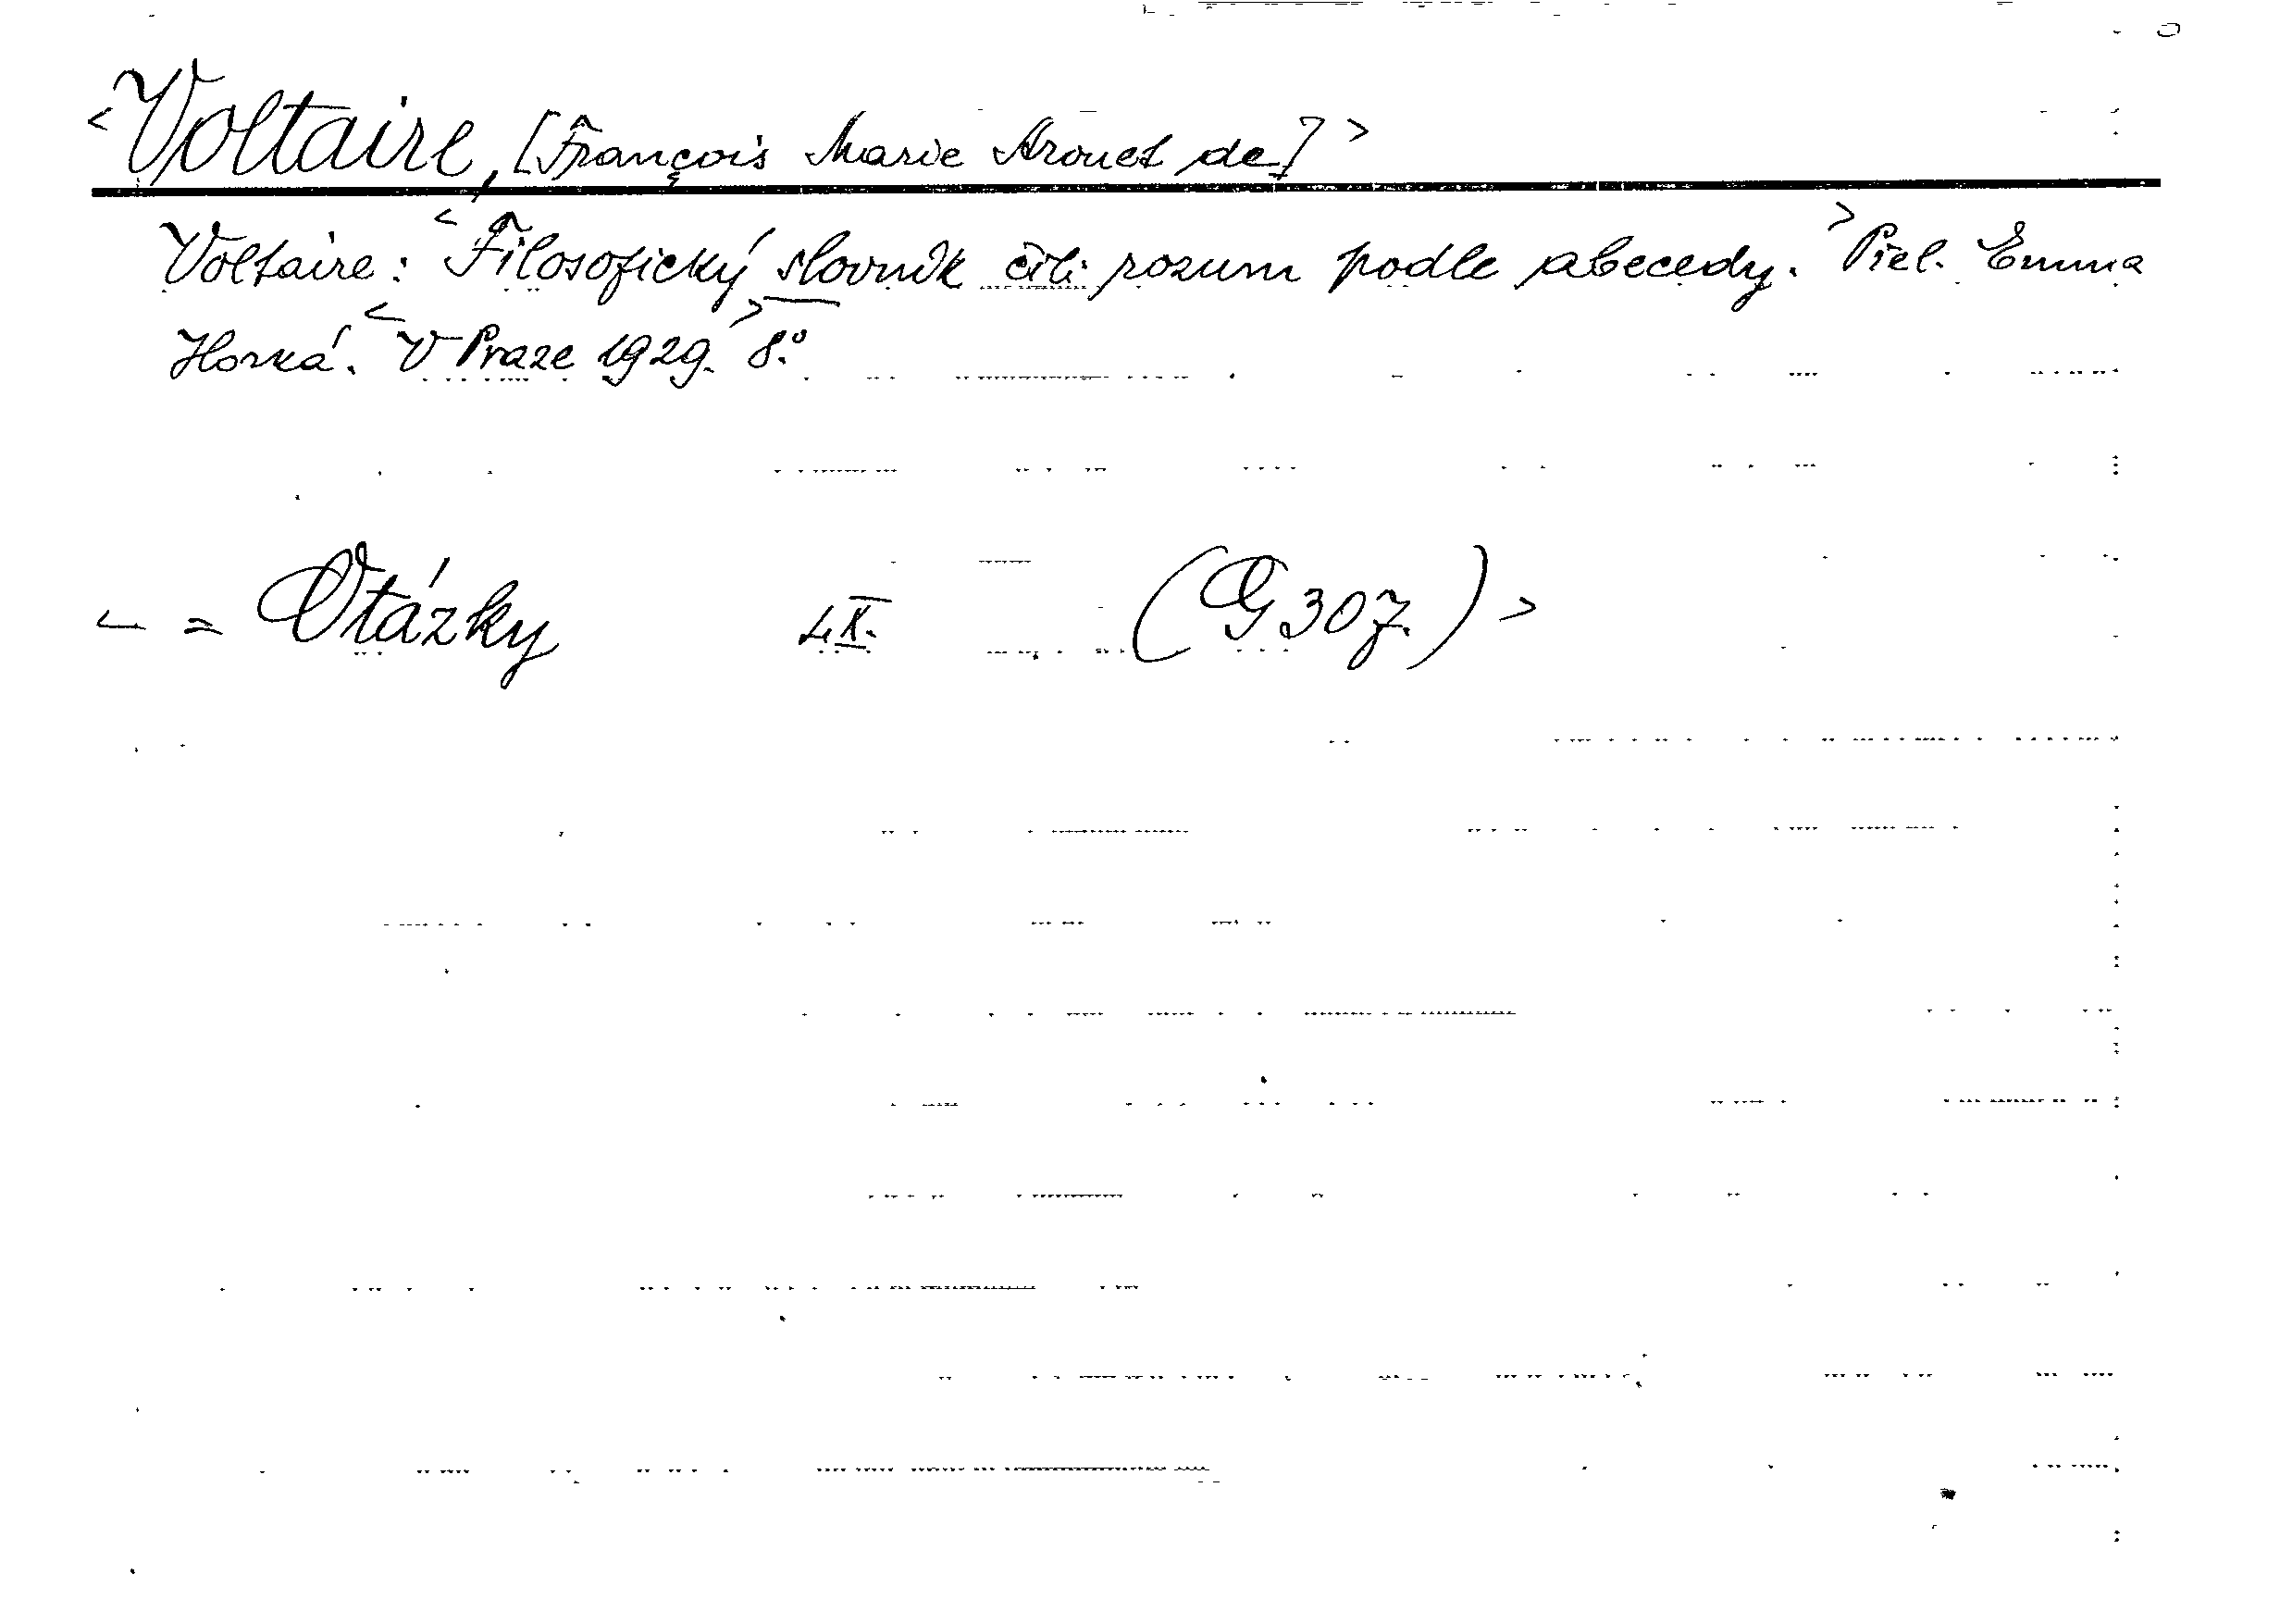 <Voltaire, [François Marie Arouet de]>
Voltaire: <Filosofický slovník čili rozum podle abecedy.> Přel. Emma
Horká. <V Praze 1929.> 8.°
< = Otázky (G 307.) >